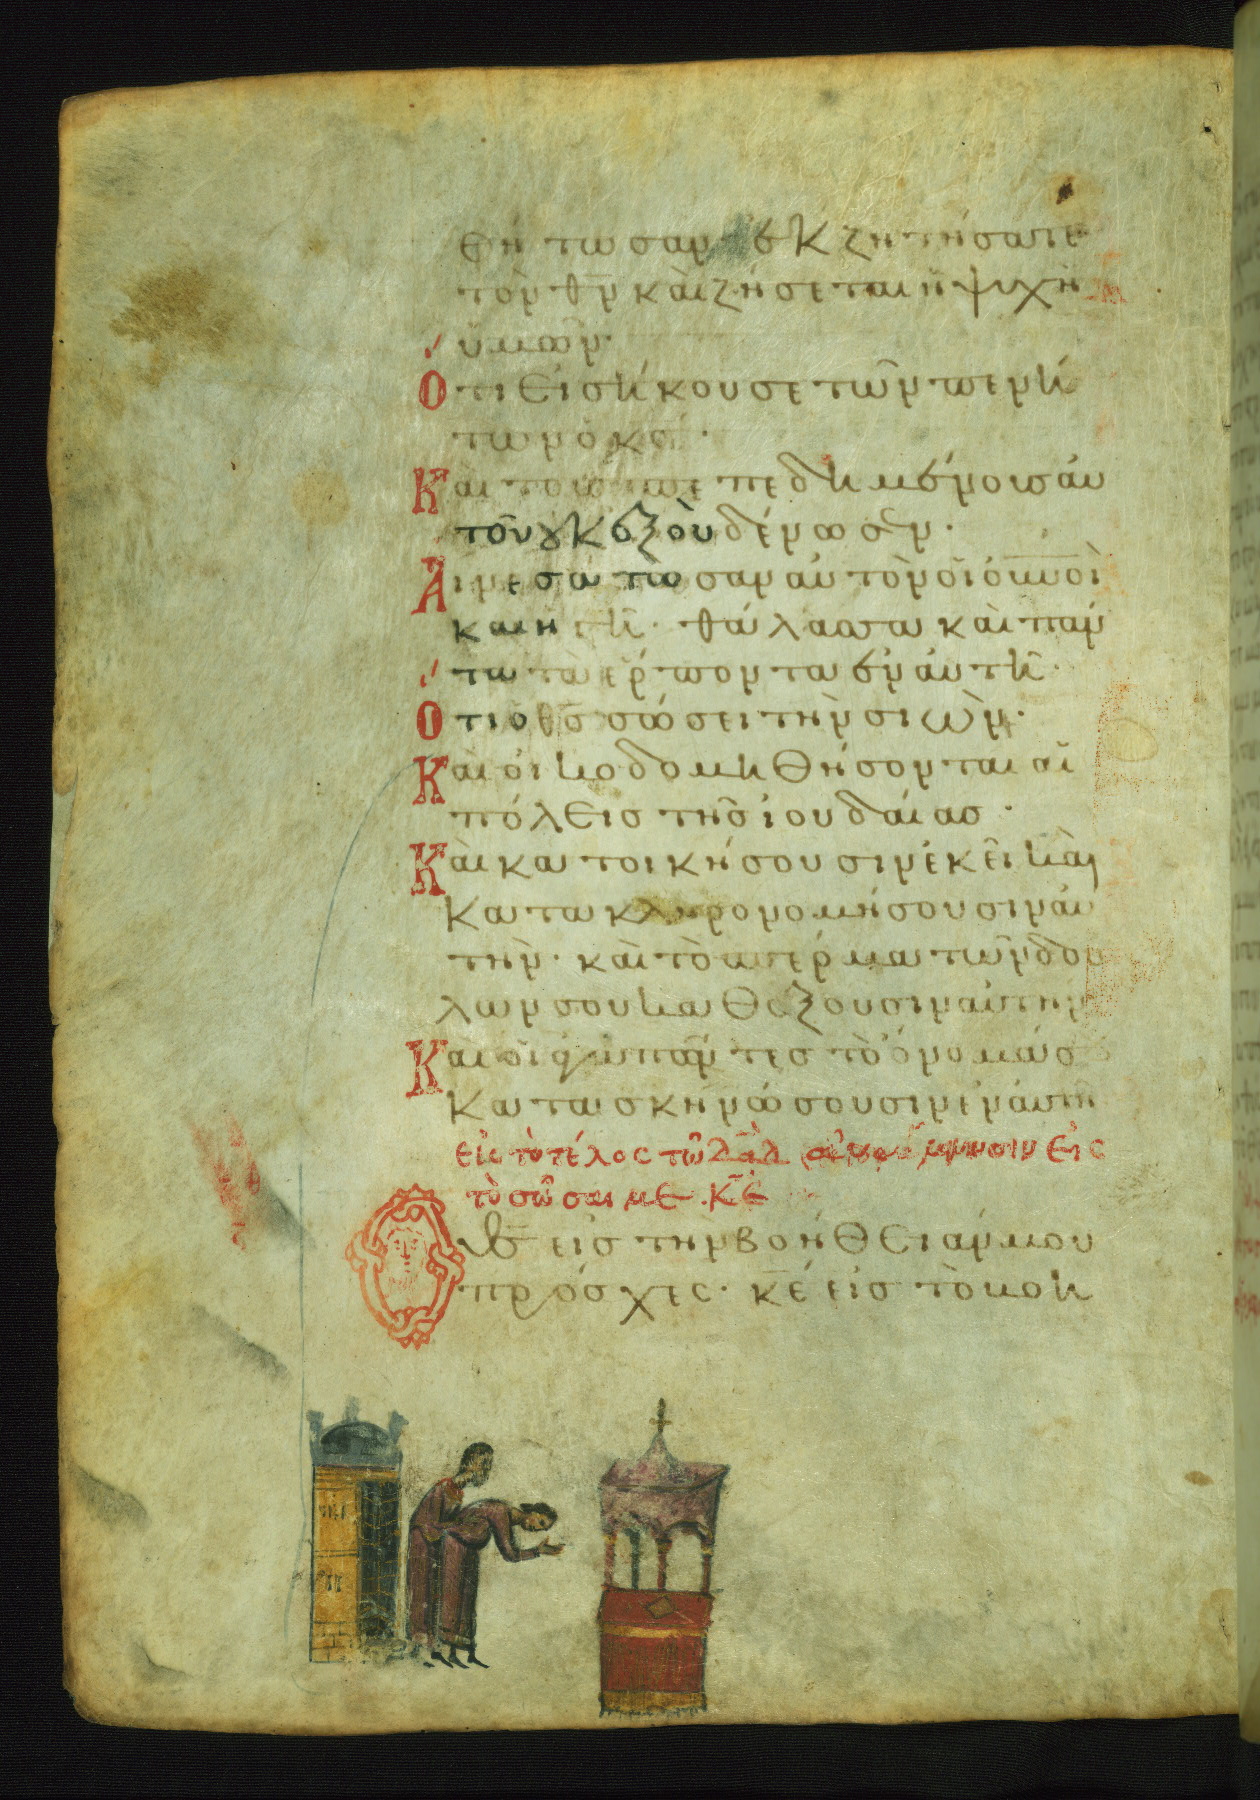 θήτωσαν ἐκζητήσατε
τὸν θν καὶ ζήσεται ἡ ψυχὴ
ὑμῶν·
Οτι εἰσήκουσε τῶν πενή
των ὁ κς·
Καὶ τοὺς πεπεδημένους αὐ
τοῦ οὐκ ἐξουδένωσεν·
Αἰνεσάτωσαν αὐτὸν οἱ οὐνοὶ
καὶ ἡ γῆ· θάλασσα καὶ πάν
τα τὰ ἕρποντα ἐν αὐτῇ·
Οτι ὁ θς σώσει τὴν σιών·
Καὶ οἰκοδομηθήσονται αἱ
πόλεις τῆς ἰουδαίας·
Καὶ κατοικήσουσιν ἐκεῖ καὶ
κατακληρονομήσουσιν αὐ
τήν· καὶ τὸ σπέρμα τῶν δού
λων σου καθέξουσιν αὐτήν
Καὶ οἱ ἀγαπῶντες τὸ ὄνομά σου
κατασκηνώσουσιν ἐν αὐτῇ
εἰς τὸ τέλος τῷ δαδ ἀνάμνησιν εἰς
τὸ σῶσαι με κε
Ο θς εἰς τὴν βοήθειάν μου
πρόσχες· κε εἰς τὸ βοη